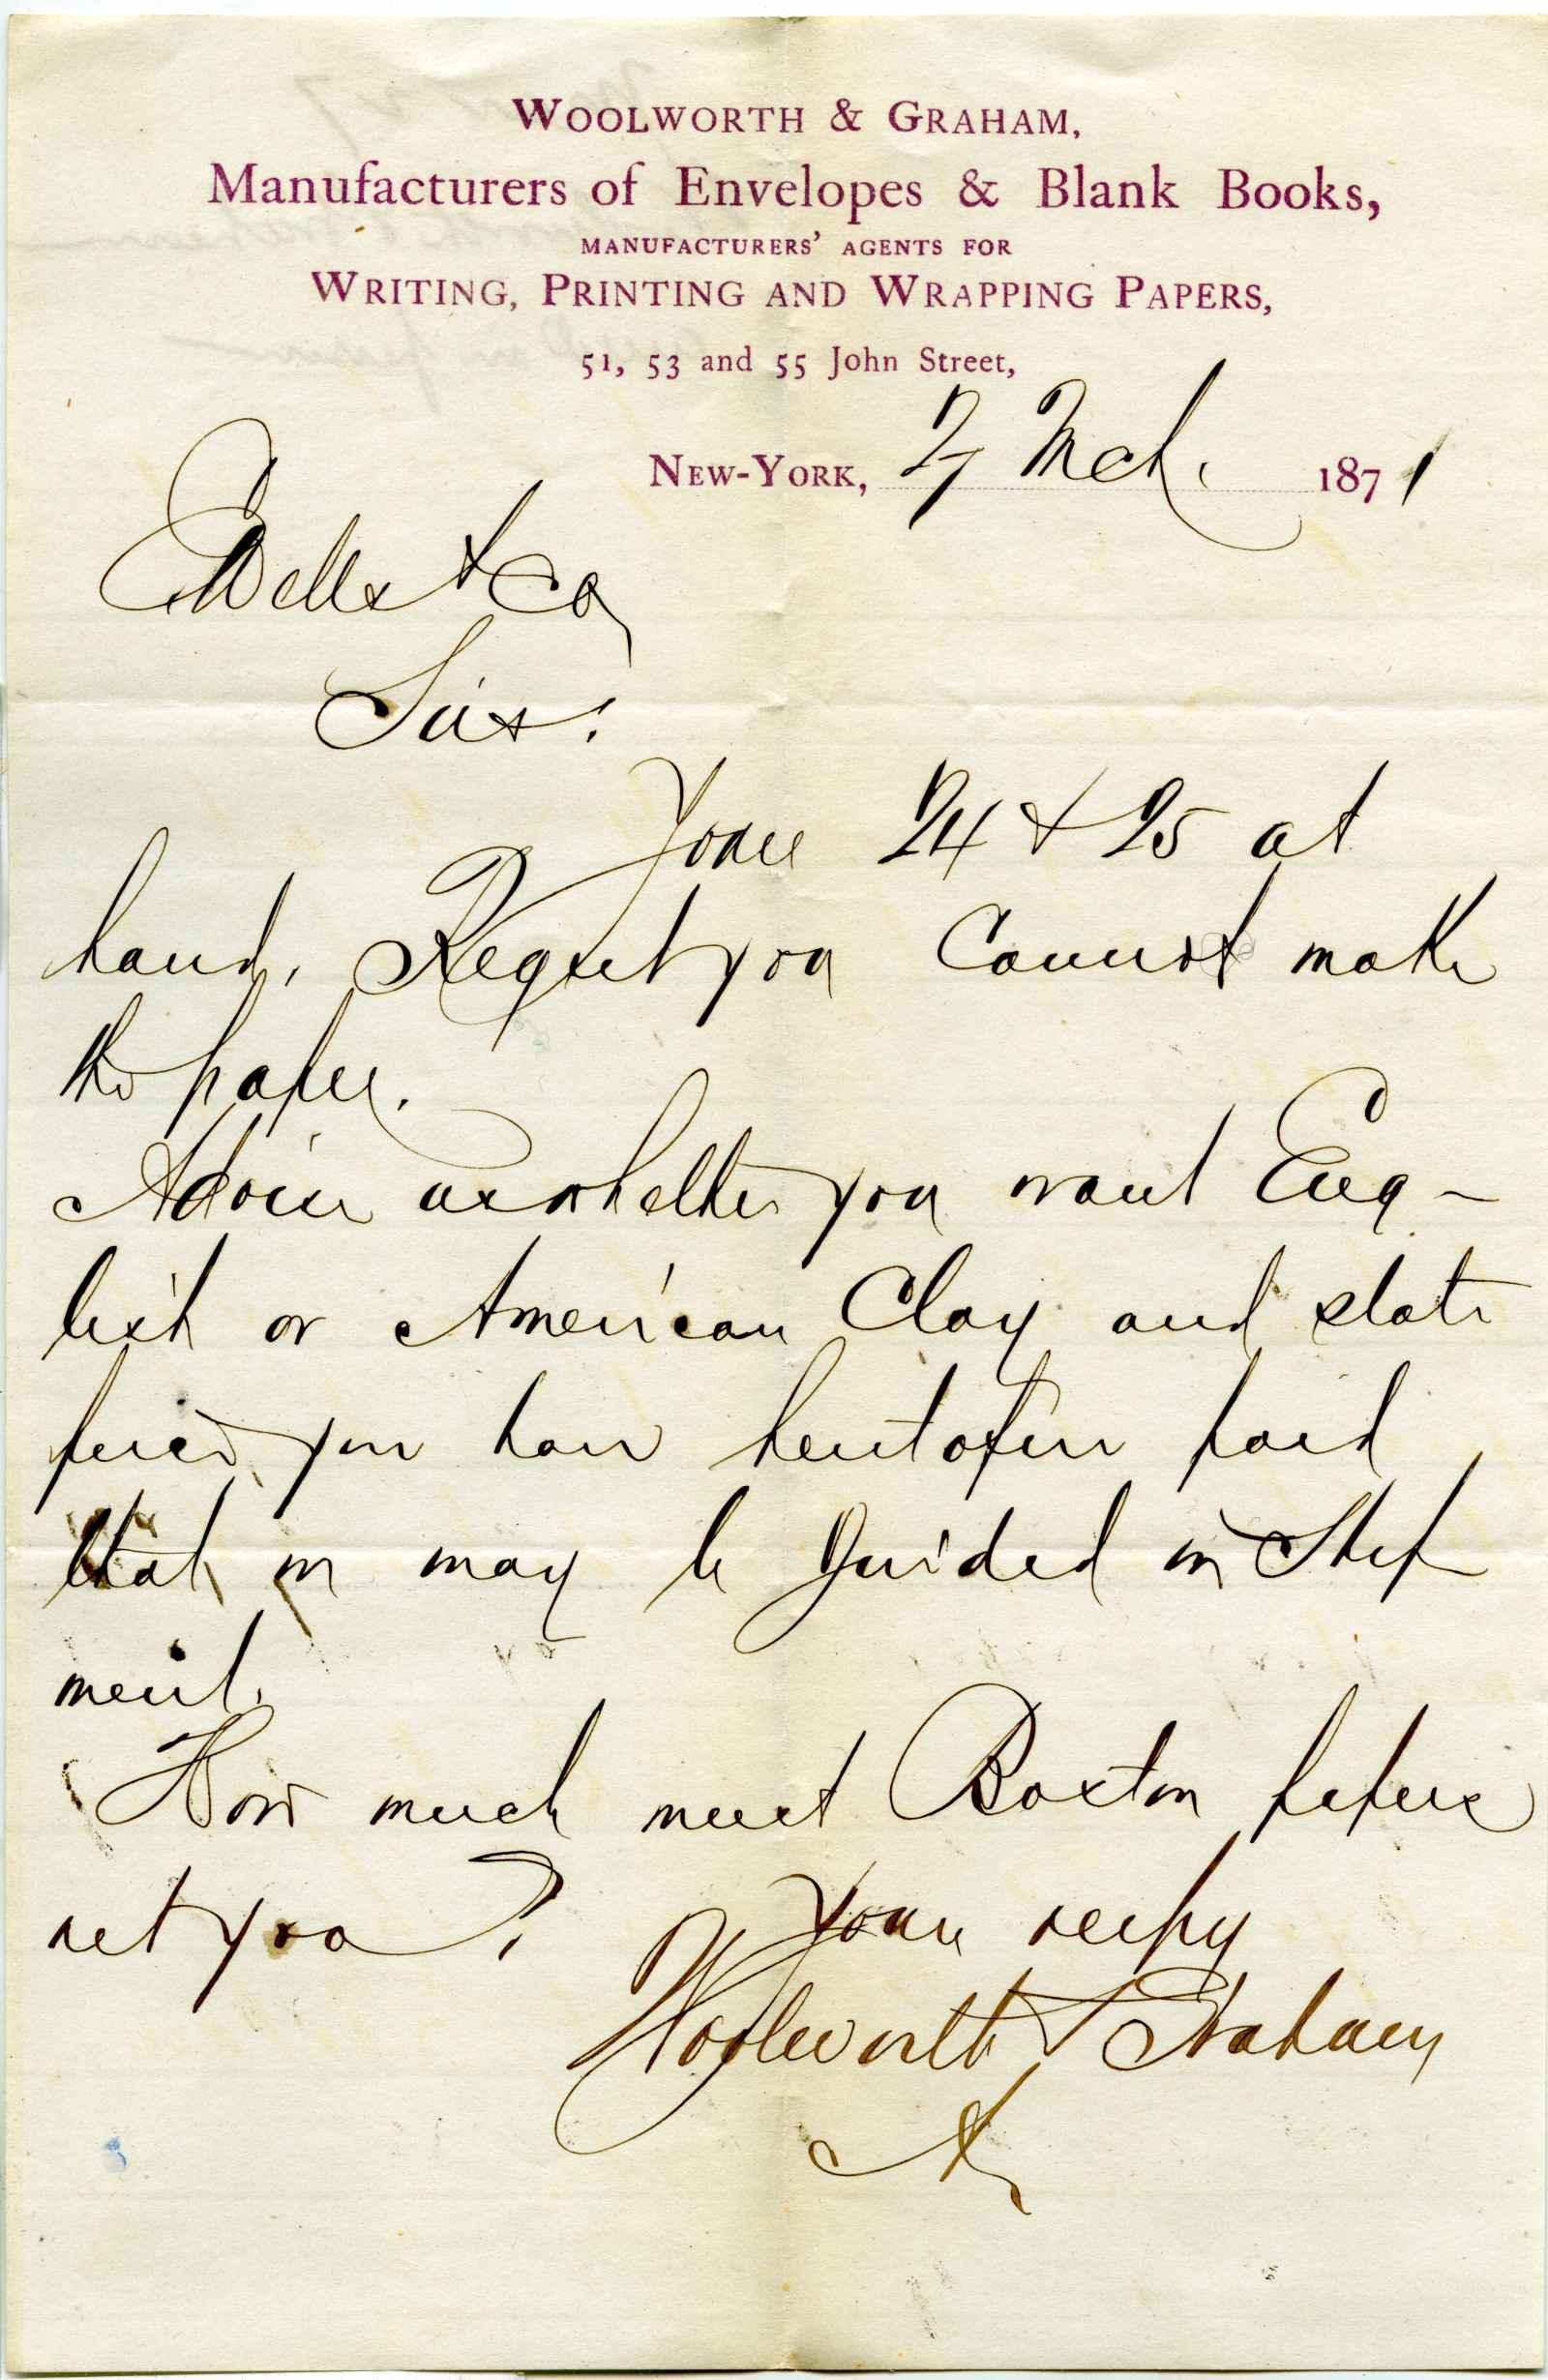 WOOLWORTH & GRAHAM,
Manufacturers of Envelopes & Blank Books,
MANUFACTURERS' AGENTS FOR
WRITING, PRINTING AND WRAPPING PAPERS,
51, 53 and 55 John Street,
NEW-YORK, 27 Mch. 1871
Wells & Co
Sirs:
Yours 24 & 25 at
hand, Regret you Cannot make
the paper.
Advise us whether you want Eng-
lish or American Clay and state
price you have heretofore paid
that we may be guided in Ship
ment.
How much must Boston papers
net you?
Yours respy
Woolworth & Graham